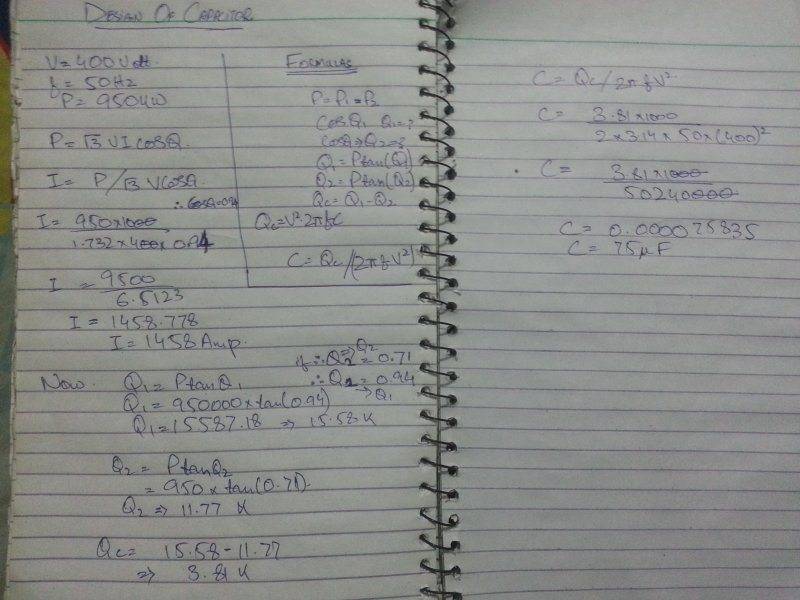 DESIGN OF CAPACITOR
V = 400 Volt
f = 50Hz
P = 950KW
P = √3 VI CosQ
I = P/√3 VCosQ
∴ CosQ=0.94
I = 950×1000
1.732×400×0.94
I = 9500
6.5123
I = 1458.778
I = 1458 Amp.
FORMULAS
P = P1 = P2
CosQ1 Q1=?
CosQ2 Q2=?
Q1 = Ptan(Q1)
Q2 = Ptan(Q2)
Qc = Q1 - Q2
Qc = V² 2πfC
C = Qc/(2πfV²)
⇒Q2
if ∴ Q2 = 0.71
∴ Q2 = 0.94
→Q1
Now. Q1 = PtanQ1
Q1 = 950000×tan(0.94)
Q1 = 15587.18 ⇒ 15.58 K
Q2 = PtanQ2
= 950 × tan(0.71)
Q2 ⇒ 11.77 K
Qc = 15.58 - 11.77
⇒ 3.81 K
C = Qc/2πfV²
C = 3.81×1000
2×3.14×50×(400)²
C = 3.81×1000
50240000
C = 0.000075835
C = 75μF